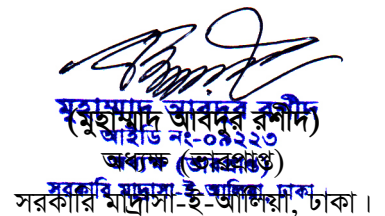 মুহাম্মাদ আবদুর রশীদ
(মুহাম্মাদ আবদুর রশীদ)
আইডি নং-০৯২২৩
অধ্যক্ষ (ভারপ্রাপ্ত)
অধ্যক্ষ (ভারপ্রাপ্ত)
সরকারি মাদ্রাসা-ই-আলিয়া, ঢাকা।
সরকারি মাদ্রাসা-ই-আলিয়া, ঢাকা।